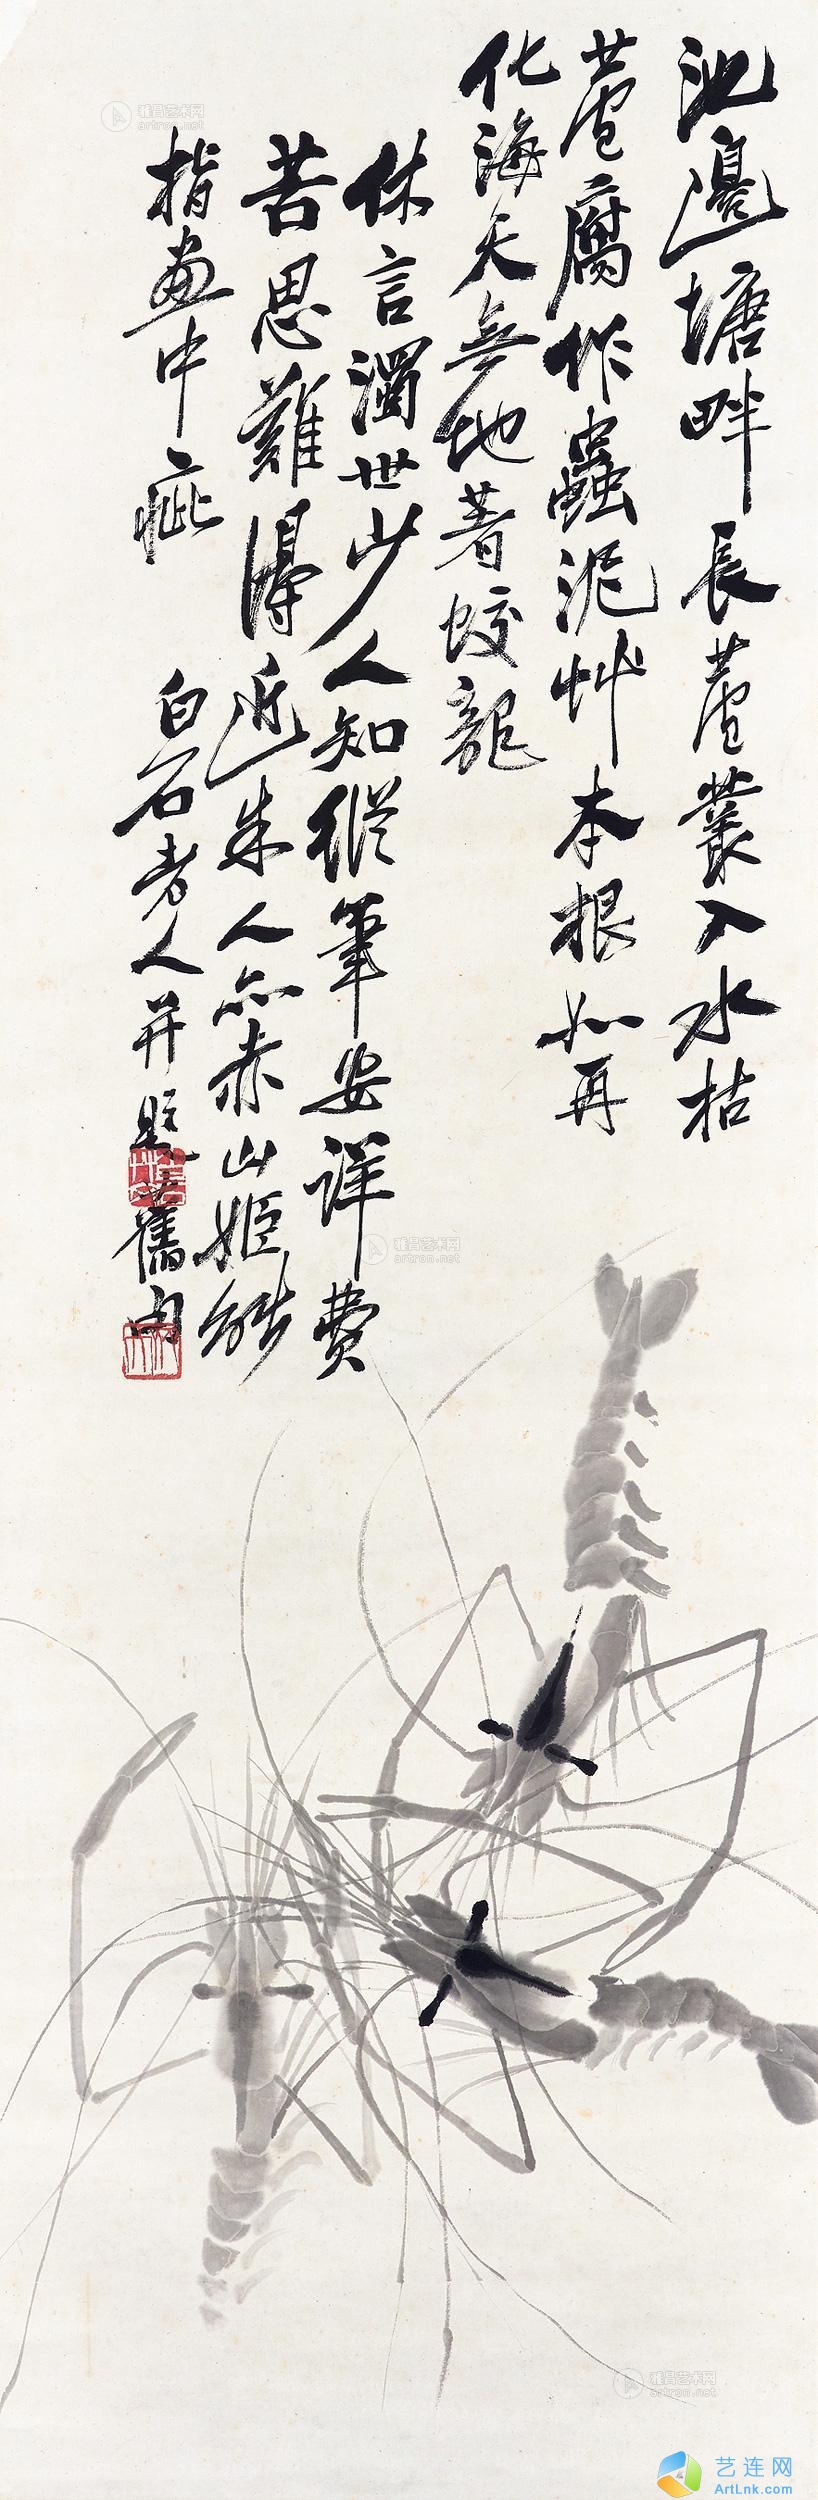 池邊塘畔長蘆叢入水枯
蘆腐作蟲泥艸本根如再
化海天無地著蛟龍
休言濁世少人知縱筆安詳費
苦思難得近朱人亦赤山姬能
指畫中疵
白石老人并題舊句
雅昌艺术网
artron.net
雅昌艺术网
artron.net
雅昌艺术网
artron.net
艺连网
ArtLnk.com